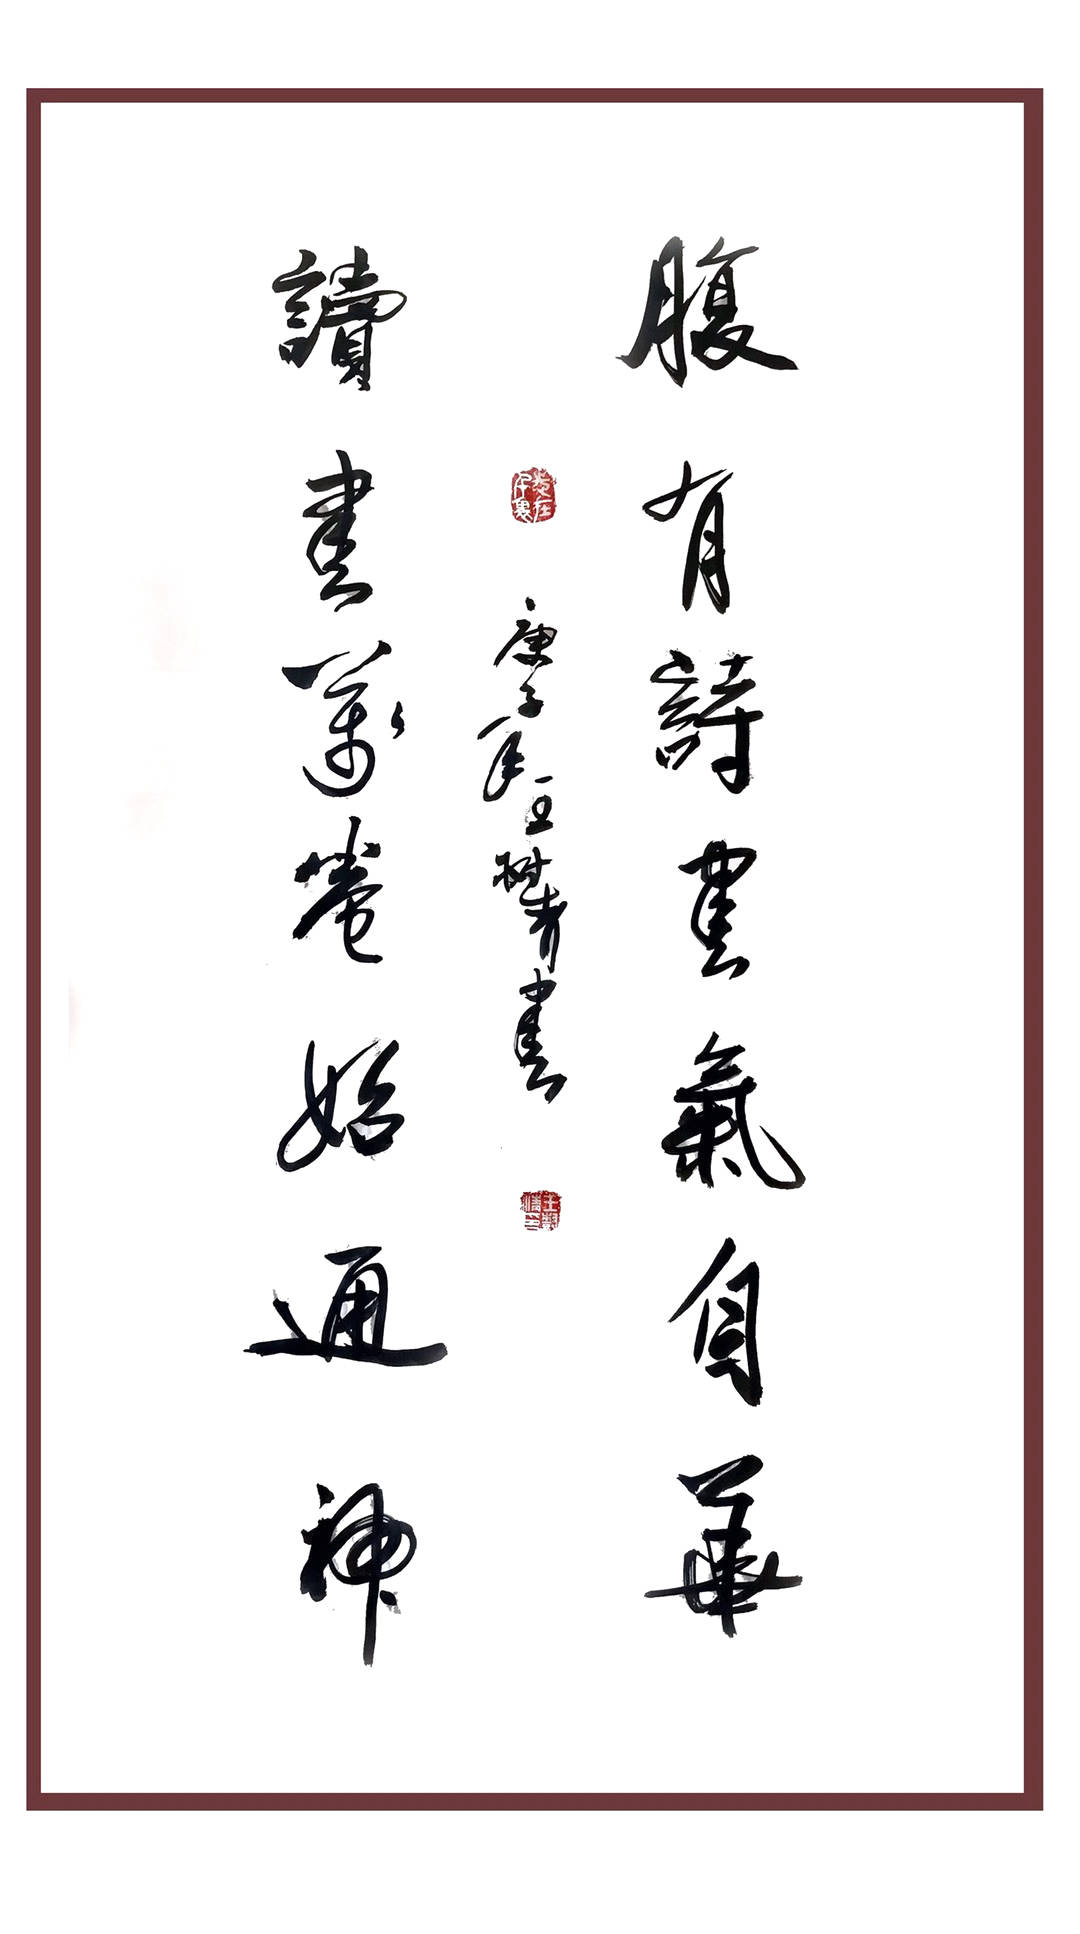 腹有詩書氣自華
讀書萬卷始通神
庚子年王樹青書